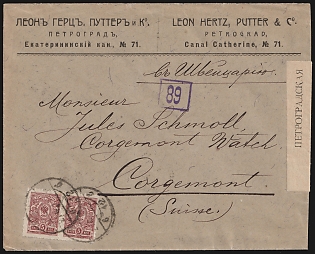 ЛЕОНЪ ГЕРЦЪ, ПУТТЕРЪ и Кº.
ПЕТРОГРАДЪ,
Екатерининскій кан., № 71.
LEON HERTZ, PUTTER & Cº.
PETROGRAD,
Canal Catherine, № 71.
въ Швейцарію.
89
Monsieur
Jules Schmoll,
Corgemont Watch
Corgemont
(Suisse)
ПЕТРОГРАДСКАЯ